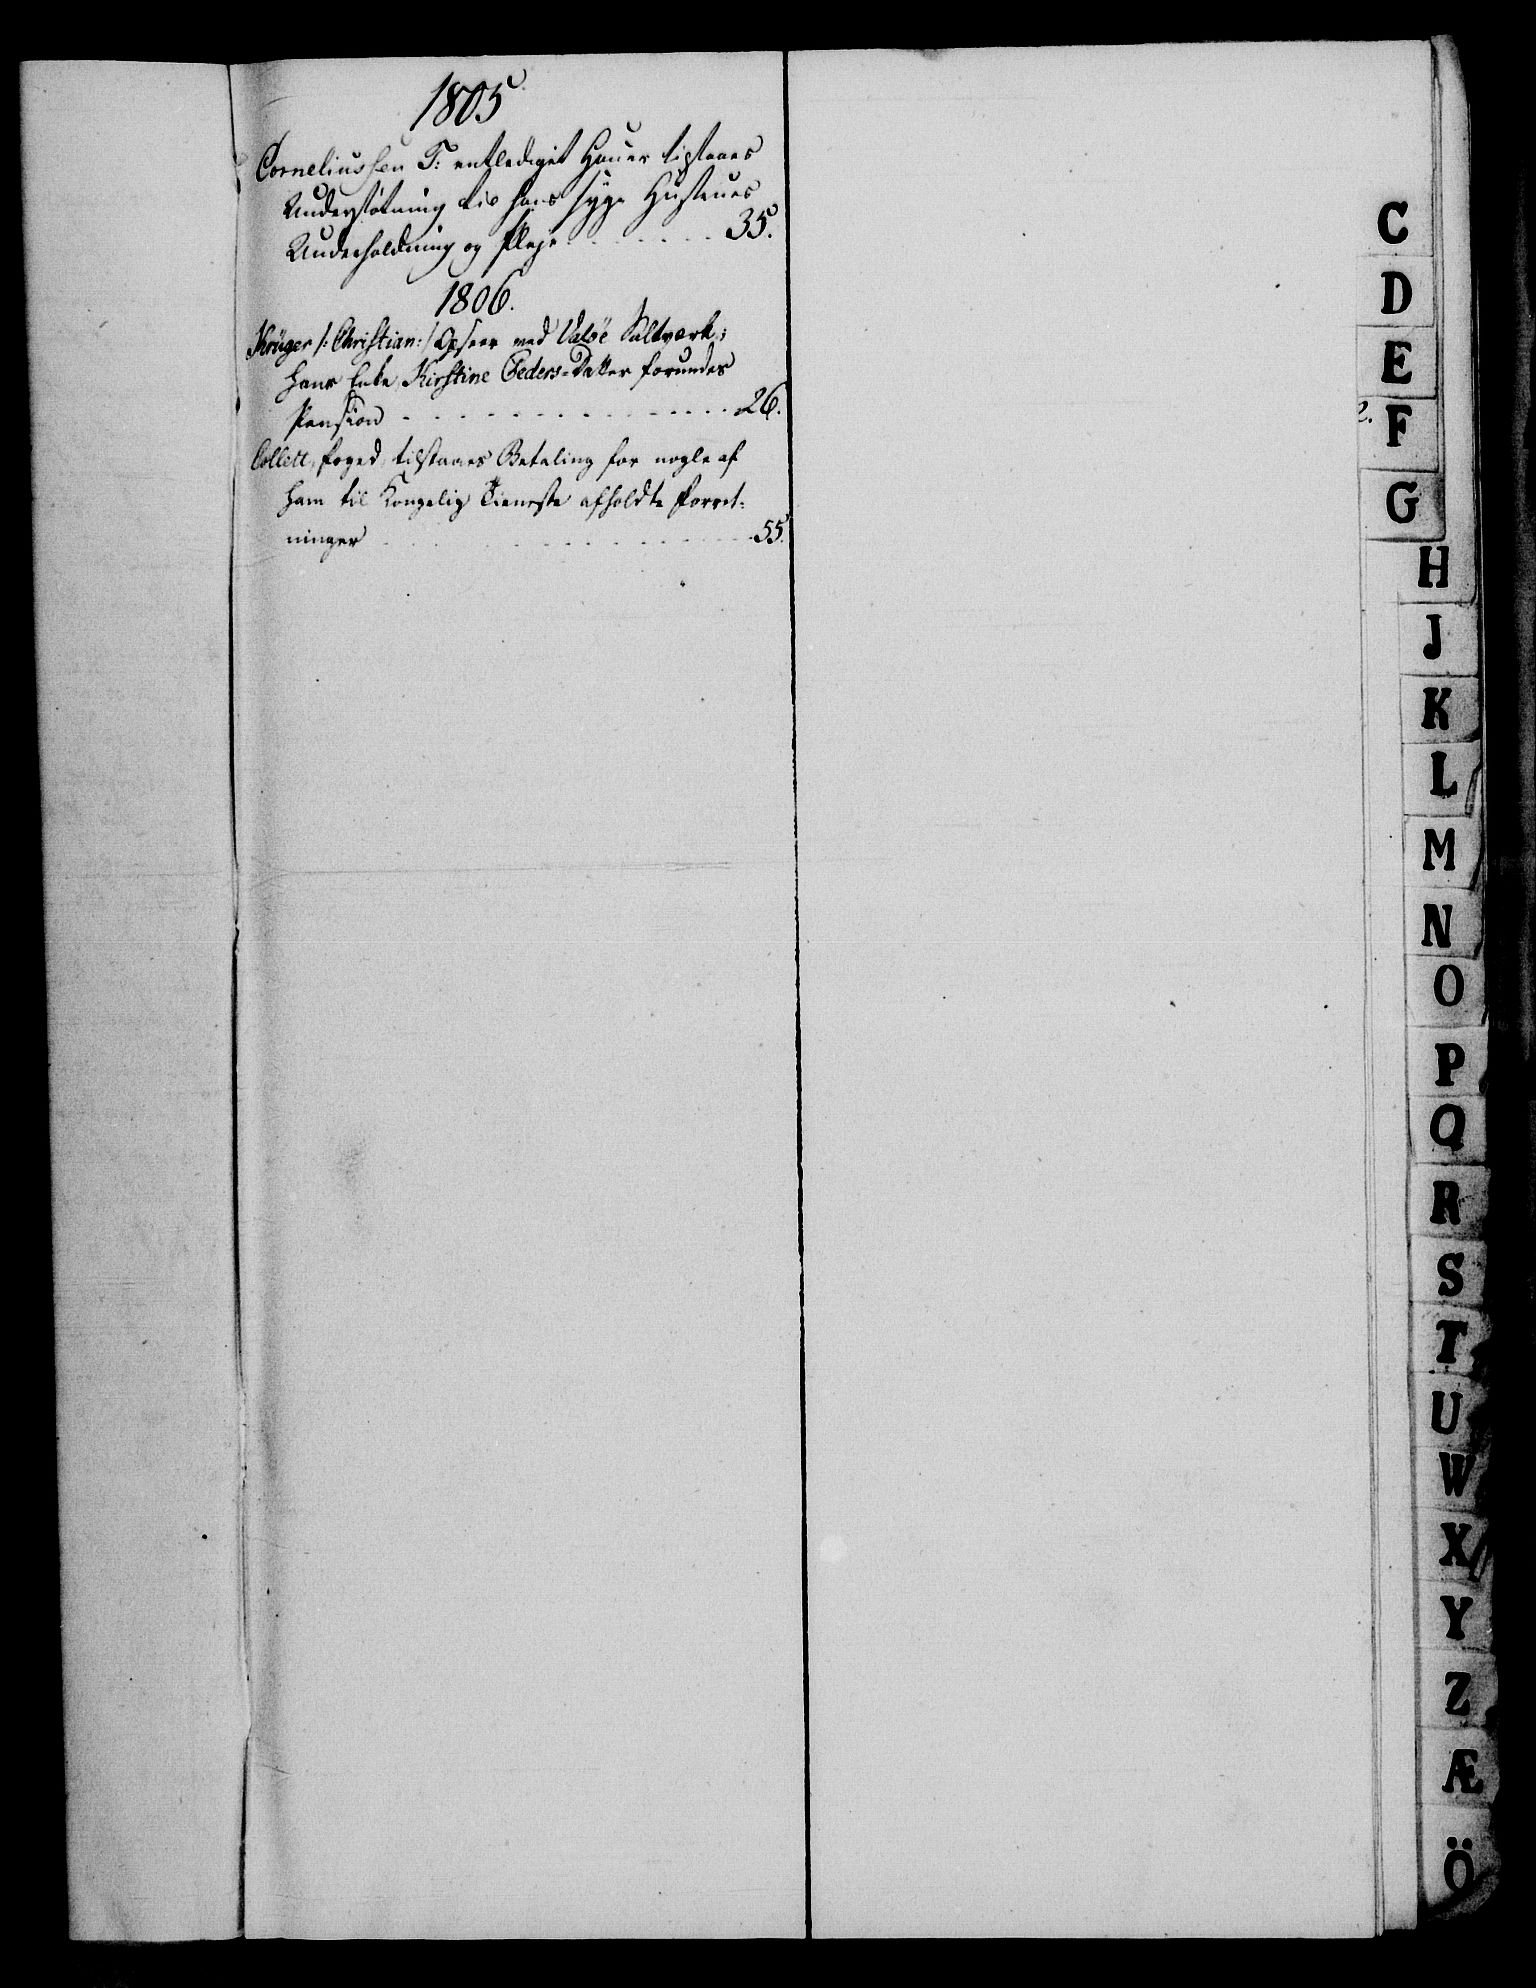 1805
Corneliussen T: entlediget Hauer tilstaaes
Understøtning til hans syge Hustrues
Underholdning og Pleje - - - - - - 35.
1806.
Krüger /: Christian :/ Opseer ved Valöe Saltværk,
hans Enke, Kirstine Peders-Datter forundes
Pension - - - - - - - - - - - 26.
Collett, Foged, tilstaaes Betaling for nogle af
ham til Kongelig Tieneste afholdte Forret-
ninger - - - - - - - - - - - 55.
C
D
E
F
G
H
J
K
L
M
N
O
P
Q
R
S
T
U
W
X
Y
Z
Æ
Ö